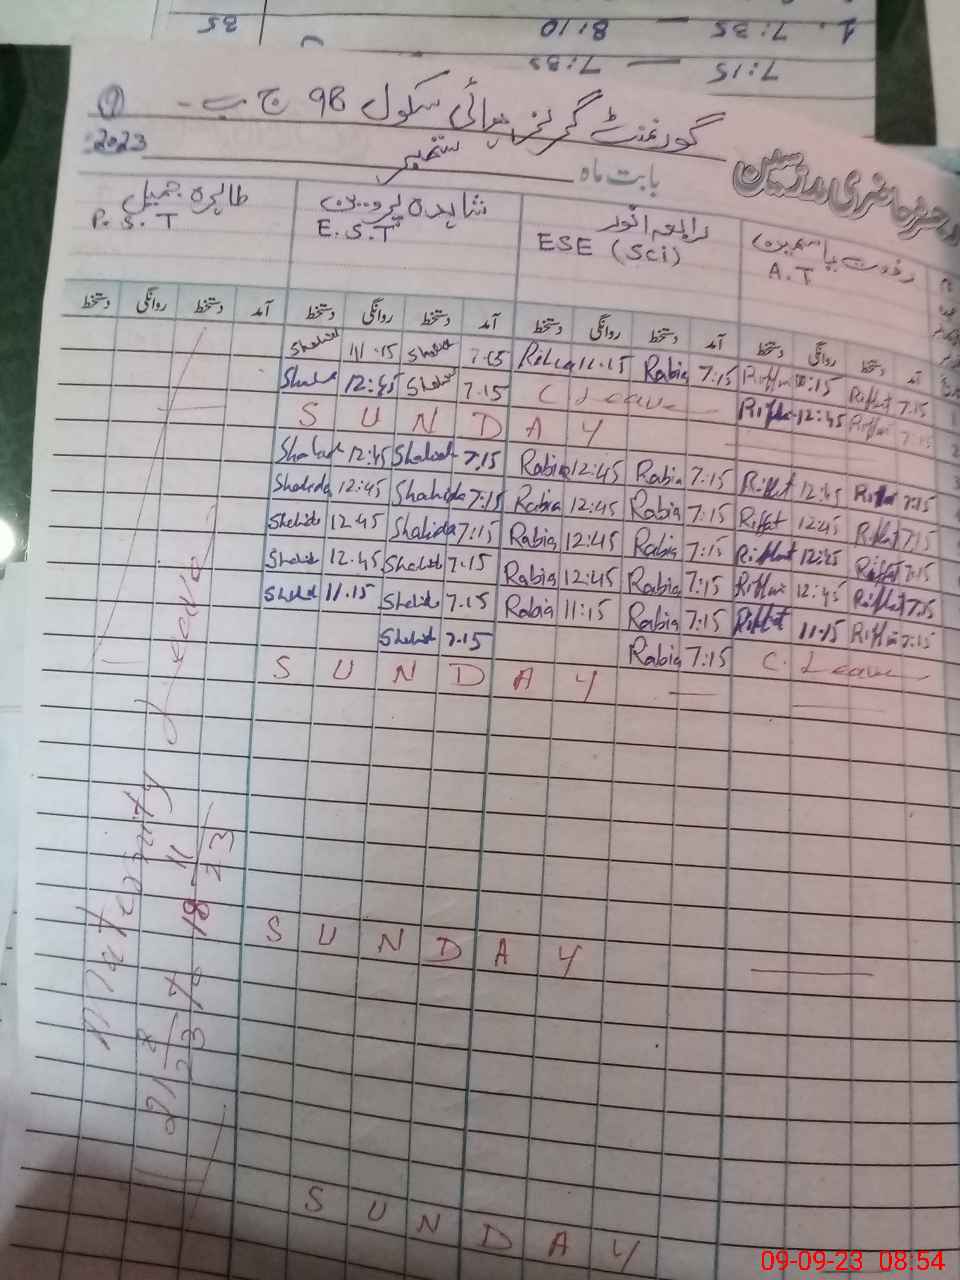 7:35 — 8:10
35
7:15 — 7:35
گورنمنٹ گرلز ہائی سکول 98 ج ب
9
حاضری مدرسین
بابت ماہ ستمبر 2023
رفعت یاسمین رابعہ انور شاہدہ پروین طاہرہ جمیل
A.T ESE (Sci) E.S.T P.S.T
آمد دستخط روانگی دستخط آمد دستخط روانگی دستخط آمد دستخط روانگی دستخط آمد دستخط روانگی دستخط
Shahid 11.15 Shahid 7.15 Rabia 11.15 Rabia 7:15 Riffat 11:15 Riffat 7.15
Shahid 12:45 Shahid 7.15 C Leave Riffat 12:45 Riffat 7.15
S U N D A Y
Shahida 12:45 Shahida 7.15 Rabia 12:45 Rabia 7:15 Riffat 12:45 Riffat 7:15
Shahida 12:45 Shahida 7:15 Rabia 12:45 Rabia 7:15 Riffat 12:45 Riffat 7:15
Shahida 12.45 Shahida 7:15 Rabia 12:45 Rabia 7:15 Riffat 12:45 Riffat 7:15
Shahida 12.45 Shahida 7.15 Rabia 12:45 Rabia 7:15 Riffat 12:45 Riffat 7:15
Shahid 11.15 Shahida 7.15 Rabia 11:15 Rabia 7:15 Riffat 11:15 Riffat 7:15
Shahid 7.15 Rabia 7:15 C. Leave
S U N D A Y
Maternity Leave
21-8-23 to 18-11-23
S U N D A Y
S U N D A Y
09-09-23 08:54